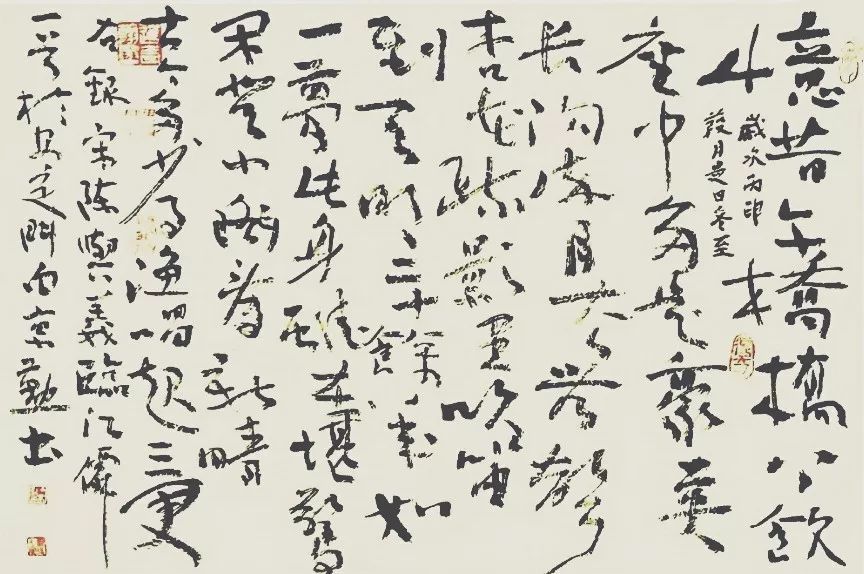 憶昔午橋橋上飲
歲次丙申
葭月
座中多是豪英
長溝流月去無聲
杏花疏影里吹笛
到天明二十餘年如
一夢此身雖在堪驚
閑登小閣看新晴
古今多少事漁唱起三更
右録宋陳與義臨江僊
一首於勤書